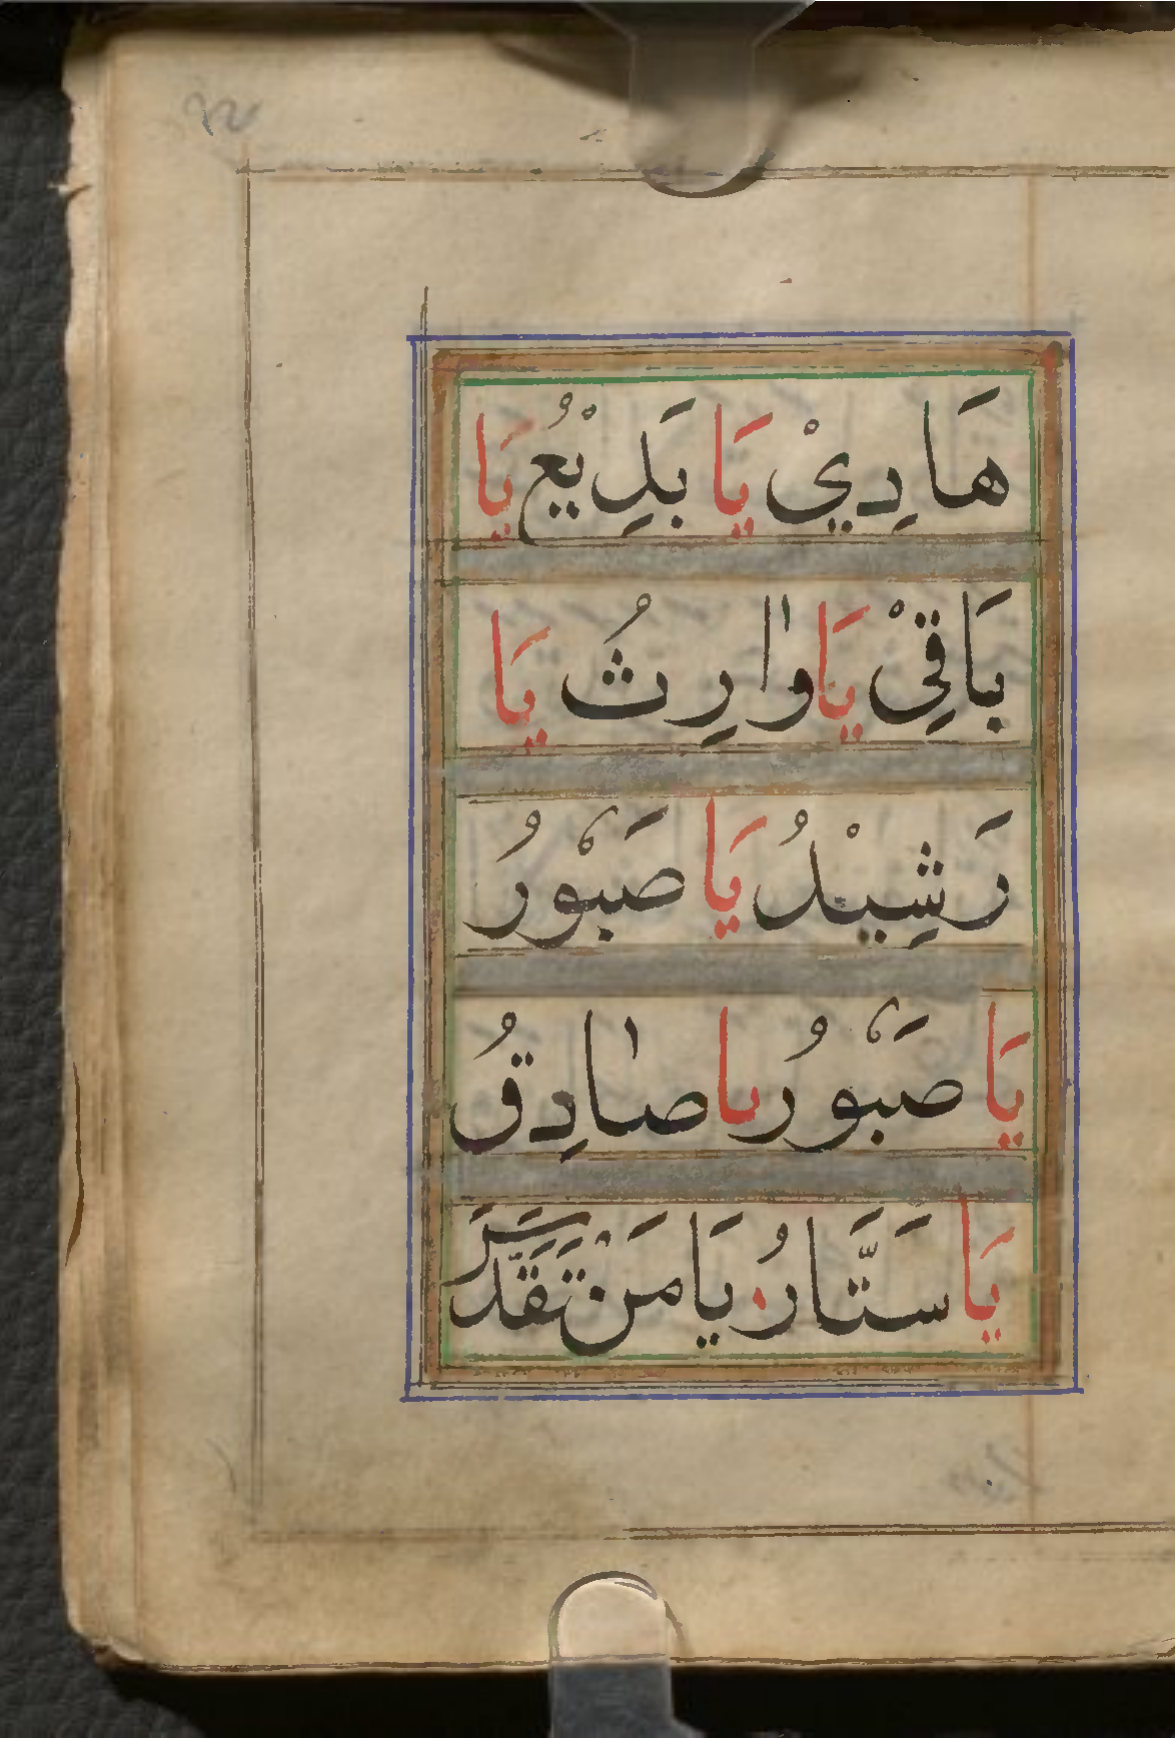 هَادِيْ يَا بَدِيْعُ يَا
بَاقِيْ يَا وٰارِثُ يَا
رَشِيْدُ يَا صَبْوُرُ
يَا صَبْوُرُ يا صٰادِقُ
يَا سَتَّارُ يَا مَنْ تَقَدَّسَرَ